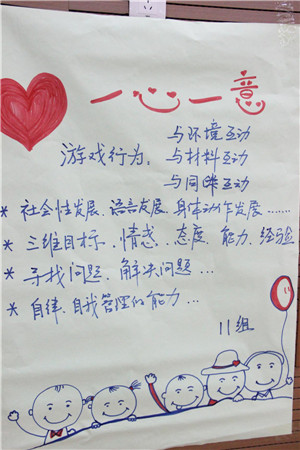 一心一意
与环境互动
游戏行为: 与材料互动
与同伴互动
* 社会性发展、语言发展、身体动作发展……
* 三维目标、情感、态度、能力、经验
* 寻找问题、解决问题…
* 自律、自我管理的能力…
11组